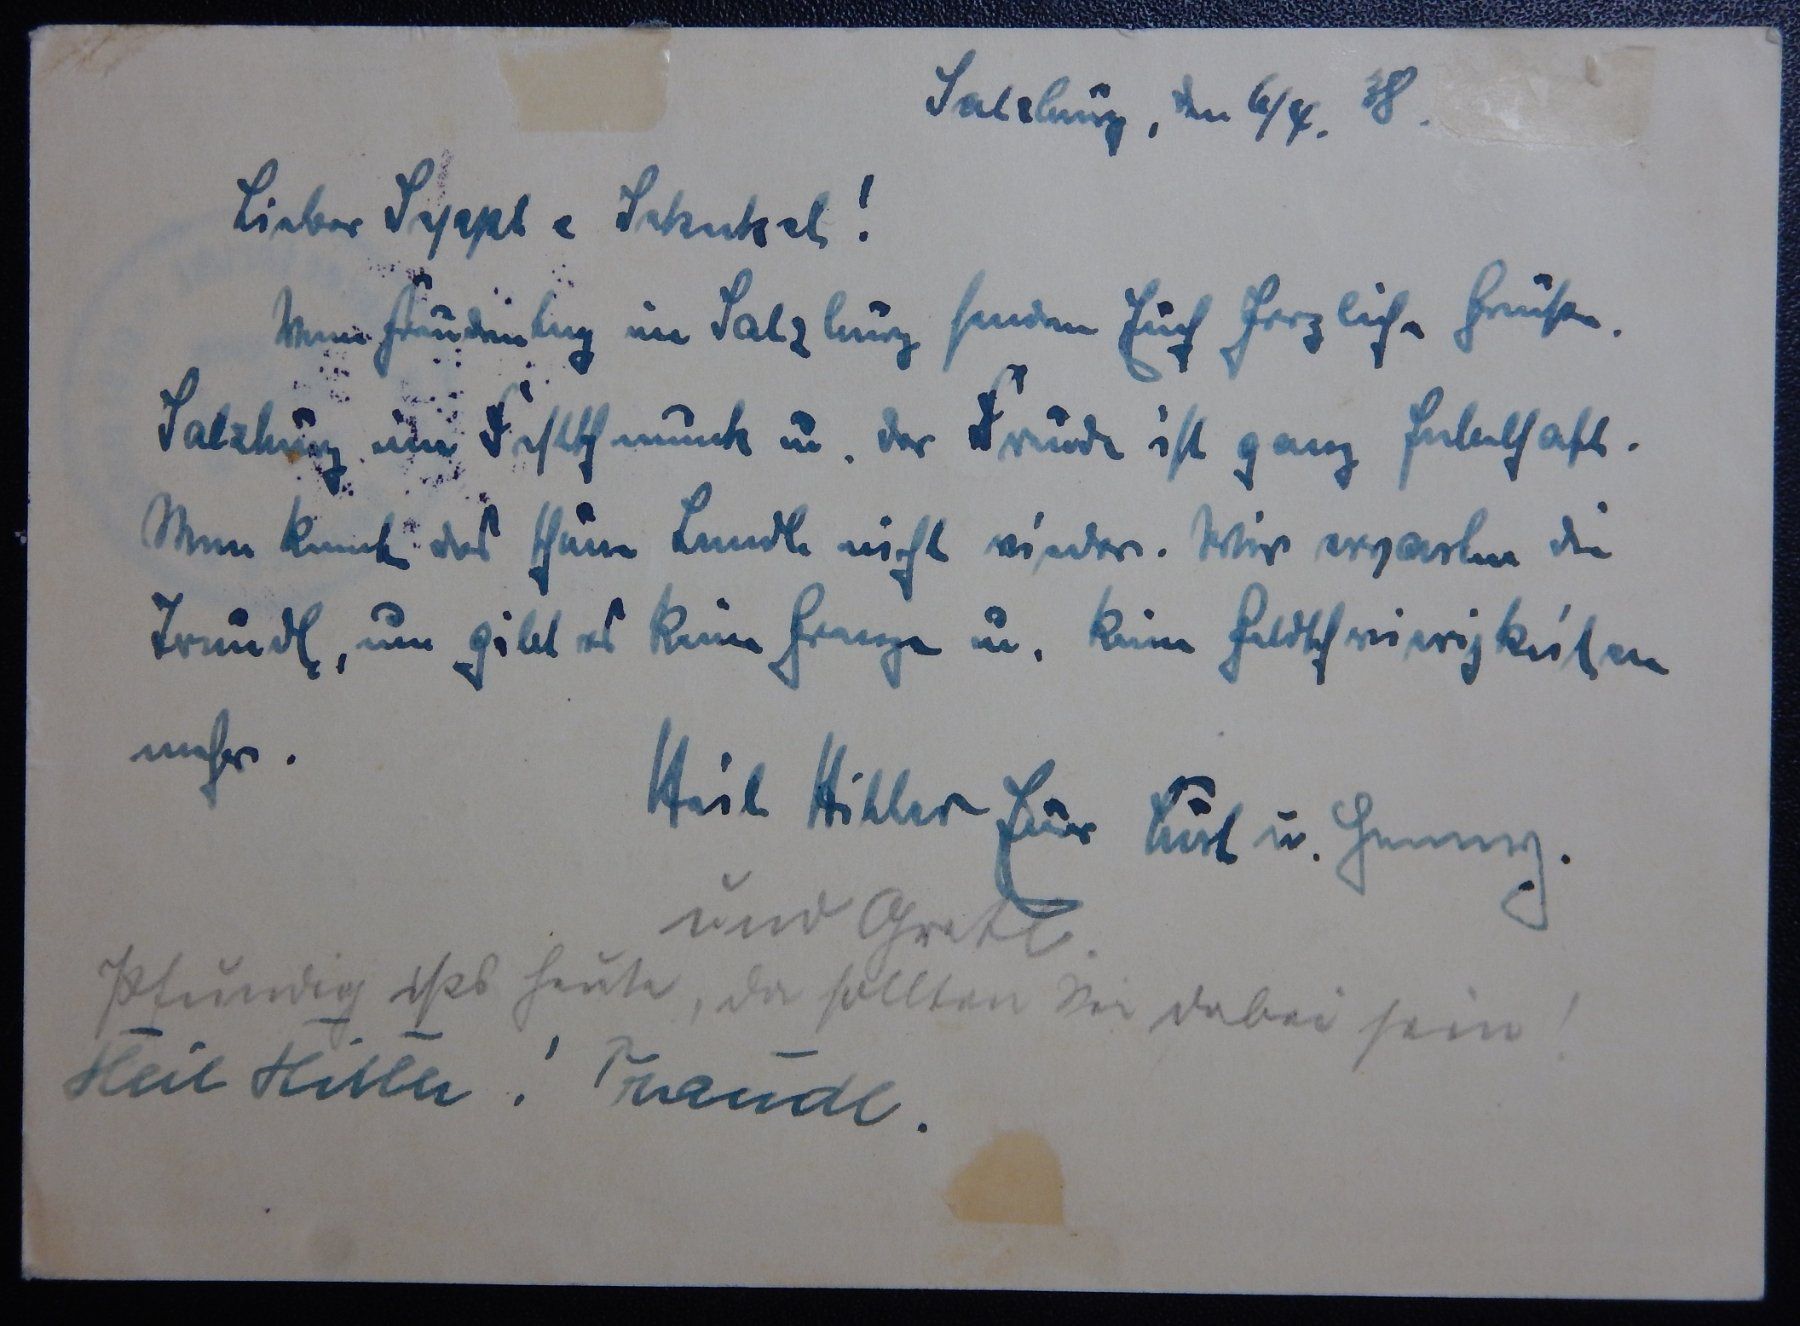 Salzburg, den 6/4. 38.
Lieber Seppl e Schukxl!
Vom Freudentag in Salzburg senden Euch herzliche Grüße.
Salzburg im Festschmuck u. der Freude ist ganz fabelhaft.
Man kennt das schöne Landl nicht wieder. Wir erwarten die
Traudl, nun gibt es keine Grenze u. keine Geldschwierigkeiten
mehr.
Heil Hitler Eure Gustl u. Henny.
und Gretl.
Pfundig ists heute, da sollten Sie dabei sein!
Heil Hitler! Traudl.